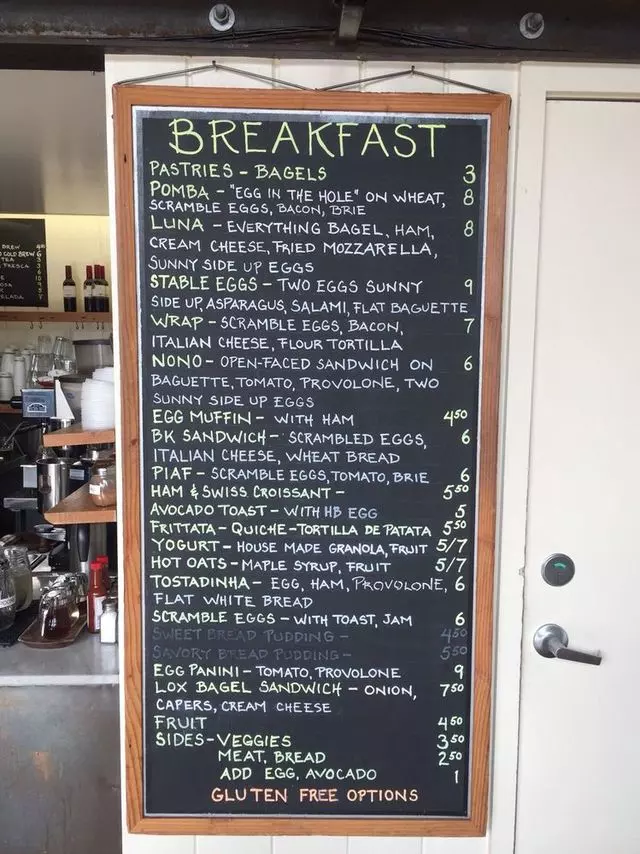 BREAKFAST
PASTRIES - BAGELS 3
POMBA - "EGG IN THE HOLE" ON WHEAT, 8
SCRAMBLE EGGS, BACON, BRIE
LUNA - EVERYTHING BAGEL, HAM, 8
CREAM CHEESE, FRIED MOZZARELLA,
SUNNY SIDE UP EGGS
STABLE EGGS - TWO EGGS SUNNY 9
SIDE UP, ASPARAGUS, SALAMI, FLAT BAGUETTE
WRAP - SCRAMBLE EGGS, BACON, 7
ITALIAN CHEESE, FLOUR TORTILLA
NONO - OPEN-FACED SANDWICH ON 6
BAGUETTE, TOMATO, PROVOLONE, TWO
SUNNY SIDE UP EGGS
EGG MUFFIN - WITH HAM 450
BK SANDWICH - SCRAMBLED EGGS, 6
ITALIAN CHEESE, WHEAT BREAD
PIAF - SCRAMBLE EGGS, TOMATO, BRIE 6
HAM & SWISS CROISSANT - 550
AVOCADO TOAST - WITH HB EGG 5
FRITTATA - QUICHE - TORTILLA DE PATATA 550
YOGURT - HOUSE MADE GRANOLA, FRUIT 5/7
HOT OATS - MAPLE SYRUP, FRUIT 5/7
TOSTADINHA - EGG, HAM, PROVOLONE, 6
FLAT WHITE BREAD
SCRAMBLE EGGS - WITH TOAST, JAM 6
SWEET BREAD PUDDING - 450
SAVORY BREAD PUDDING - 550
EGG PANINI - TOMATO, PROVOLONE 9
LOX BAGEL SANDWICH - ONION, 750
CAPERS, CREAM CHEESE
FRUIT 450
SIDES - VEGGIES 350
MEAT, BREAD 250
ADD EGG, AVOCADO 1
GLUTEN FREE OPTIONS
BREW
COLD BREW
TEA
FRESCA